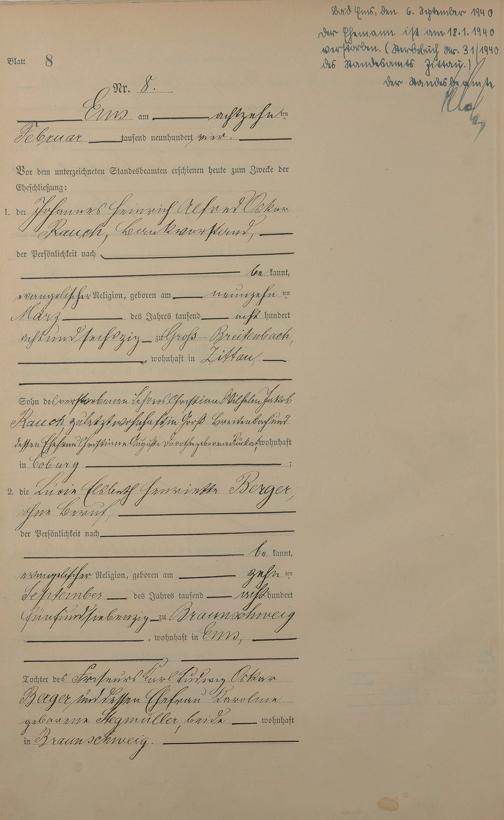 Bad Ems, den 6. September 1940
Der Ehemann ist am 18.1.1940
verstorben. (Sterbebuch Nr. 31/1940
des Standesamts Zittau.)
Der Standesbeamte
Blatt 8
Nr. 8.
Ems am achtzehnten
Februar tausend neunhundert vier.
Vor dem unterzeichneten Standesbeamten erschienen heute zum Zwecke der
Eheschließung:
1. der Johannes Heinrich Alfred Oskar
Rauch, Bankvorstand,
der Persönlichkeit nach
be kannt,
evangelischer Religion, geboren am neunzehn ten
März des Jahres tausend acht hundert
achtundsechszig zu Groß-Breitenbach,
, wohnhaft in Zittau
Sohn des verstorbenen Lehrers Christian Wilhelm Jakob
Rauch, zuletzt wohnhaft in Groß Breitenbach und
dessen Ehefrau Christiane Auguste Dorothea geborene wohnhaft
in Coburg ;
2. die Lucie Elsbeth Henriette Berger,
ohne Beruf,
der Persönlichkeit nach
be kannt,
evangelischer Religion, geboren am zehn ten
September des Jahres tausend acht hundert
fünfundsiebenzig zu Braunschweig
, wohnhaft in Ems,
Tochter des Friseurs Karl Ludwig Oskar
Berger, und dessen Ehefrau Karoline
geborene Stegmüller, beide wohnhaft
in Braunschweig.